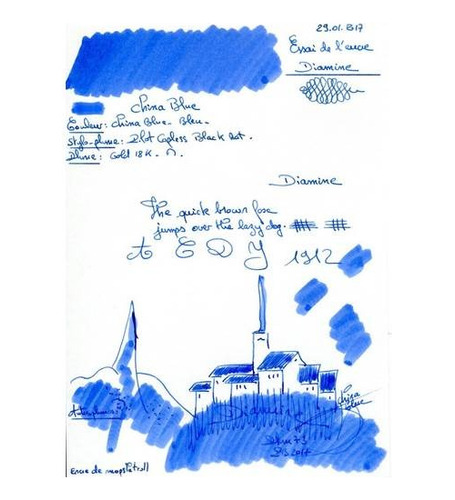 29.01.2017
Essai de l'encre
Diamine
China Blue
Couleur: China Blue - Bleu.
Stylo-plume: Pilot Capless Black Mat.
Plume: Gold 18K. M.
Diamine
The quick brown fox
jumps over the lazy dog.
A E D Y 1912
China
Blue
Diamine
2017
Encre de